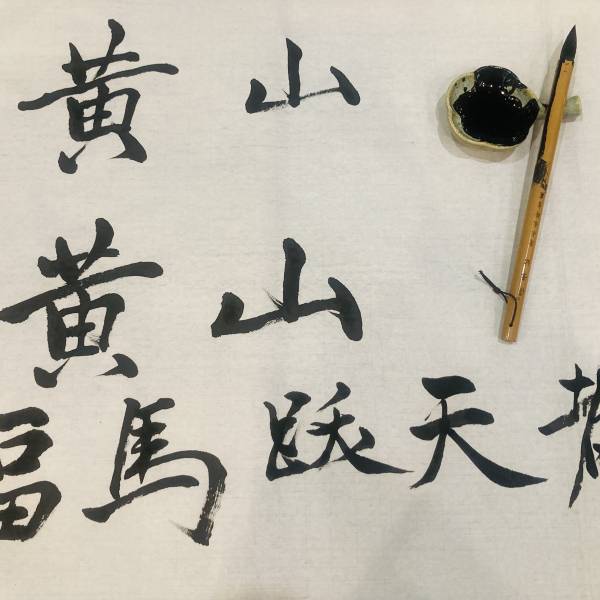 黄山
黄山
福馬跃天